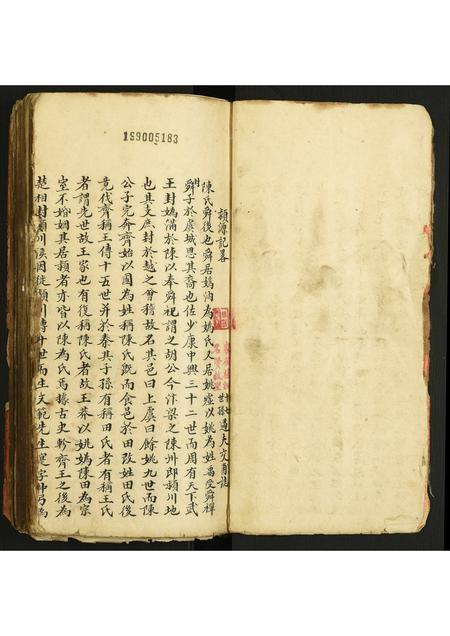 199005183
潁溥記畧
世孫遇夫文
陳氏舜後也舜居媯汭為媯氏又居姚墟以姚為姓禹受舜禪
封舜子於虞城思其裔也佐少康中興三十二世而周有天下武
王封媯滿於陳以奉舜祀謂之胡公今汴梁之陳州即潁川地
也其支庶封於越之會稽故名其邑曰上虞曰餘姚九世而陳
公子完奔齊始以國為姓稱陳氏旣而食邑於田改姓田氏後
竟代齊稱王傳十五世并於秦其子孫有稱田氏者有稱王氏
者謂先世故王家也有後稱陳氏者故王莽以姚媯陳田為宗
室不婚姻其居潁者亦皆以陳為氏馬據古史軫齊王之後為
楚相封潁川侯因徙潁川傳十世而生文範先生寔字仲弓為